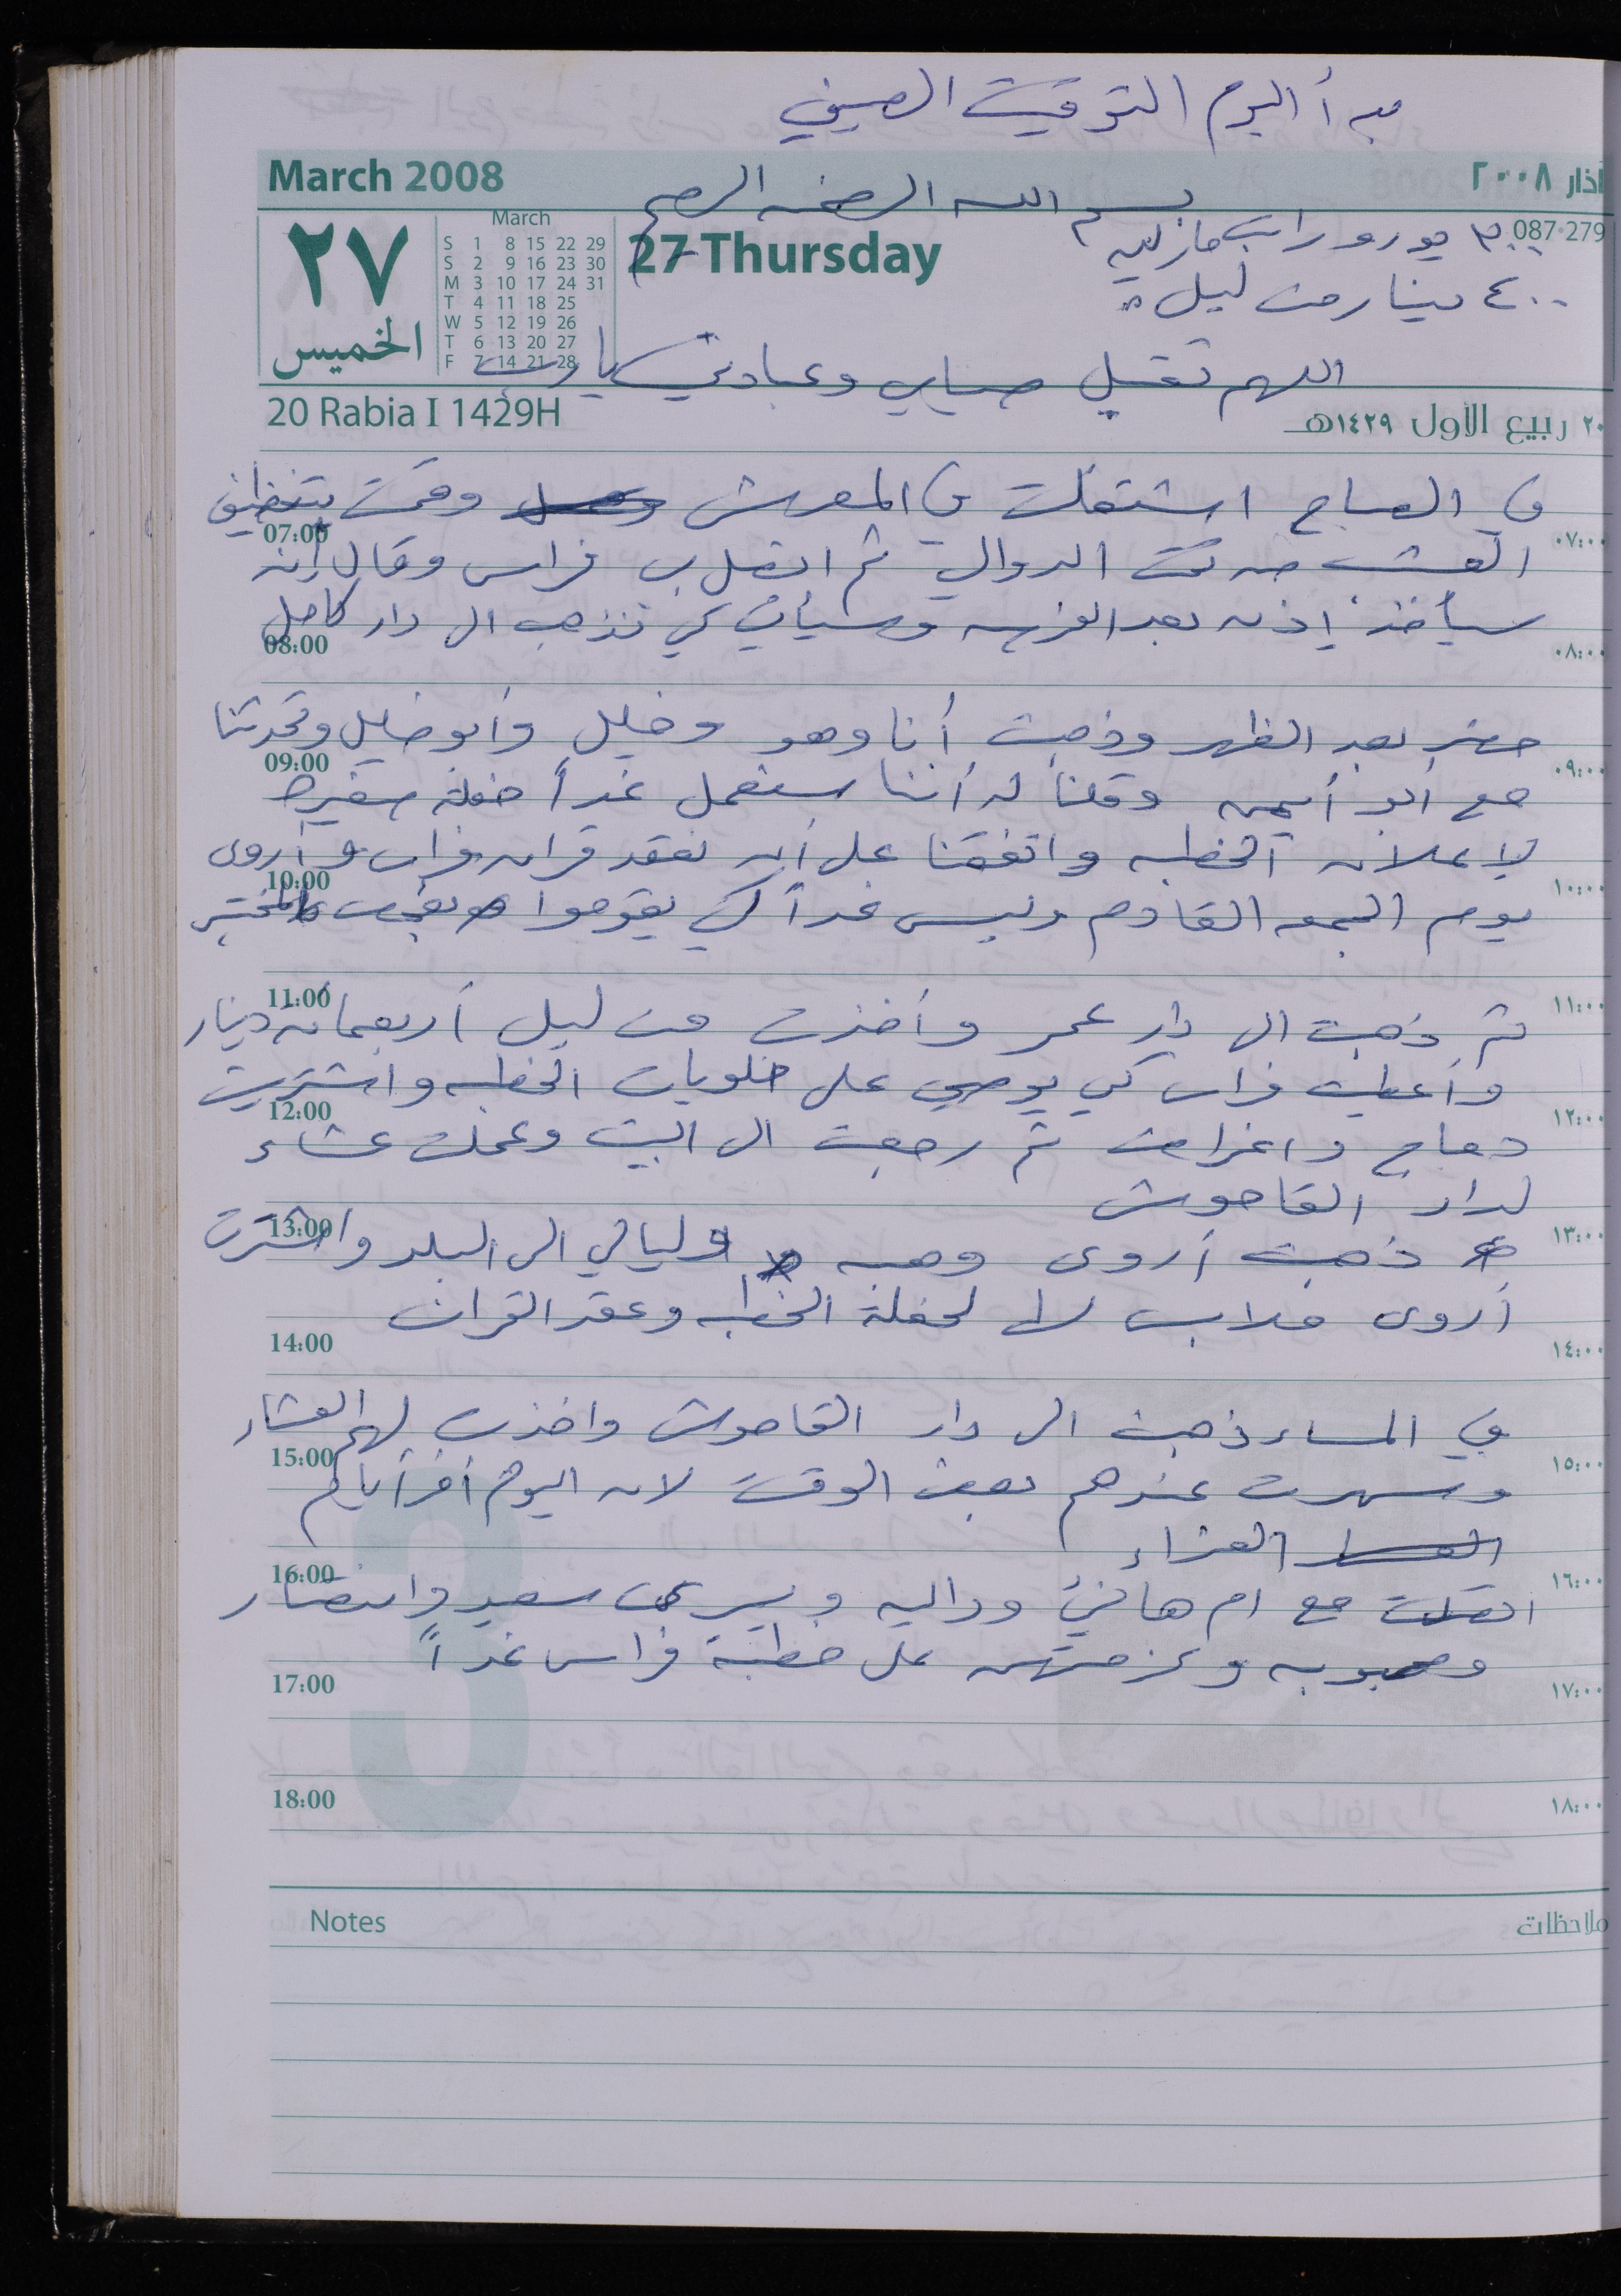 بدأ اليوم التوقيت الصيفي
March 2008
آذار ٢٠٠٨
بسم الله الرحمن الرحيم
٢٧
الخميس
March
S 1 8 15 22 29
S 2 9 16 23 30
M 3 10 17 24 31
T 4 11 18 25
W 5 12 19 26
T 6 13 20 27
F 7 14 21 28
27 Thursday
087-279
٣٠٠ يورو راتب
٤٠٠ دينار من ليل
اللهم تقبل صيامي وعبادتي يا رب
20 Rabia I 1429H
٢٠ ربيع الأول ١٤٢٩هـ
في الصباح اشتغلت في المعرش وقمت بتنظيف
07:00 ٠٧:٠٠
العشب من تحت الدوالي ثم اتصل بي فراس وقال إنه
سيأخذ إذن بعد الفرصه وسيأتي كي نذهب الى دار كامل
08:00 ٠٨:٠٠
حضر بعد الظهر وذهبت أنا وهو وخليل وأبو خليل وتحدثنا
09:00 ٠٩:٠٠
مع أبو أيمن وقلنا له أننا سنعمل غداً حفلة صغيرة
لإعلان الخطبه واتفقنا على أن نعقد قران فراس وأروى
10:00 ١٠:٠٠
يوم الجمعه القادم وليس غداً كي يقوموا بفحص المختبر
11:00 ١١:٠٠
ثم ذهبت الى دار عمر وأخذت من ليل أربعمائة دينار
وأعطيت فراس كي يوصي على حلويات الخطبه واشتريت
12:00 ١٢:٠٠
دجاج واغراض ثم رجعت الى البيت وعملت عشاء
لدار القاموش
13:00 ١٣:٠٠
ذهبت أروى وهبه وليالي الى البلد واشترت
أروى ملابس لها لحفلة الخطبه وعقد القران
14:00 ١٤:٠٠
في المساء ذهبت الى دار القاموش واخذت لهم العشاء
15:00 ١٥:٠٠
وسهرت عندهم بعض الوقت لان اليوم آخر أيام
العزاء
16:00 ١٦:٠٠
اتصلت مع ام هاني وداليه ويسرى سعيد وانتصار
وعزمتهن على خطبة فراس غداً
17:00 ١٧:٠٠
18:00 ١٨:٠٠
Notes
ملاحظات